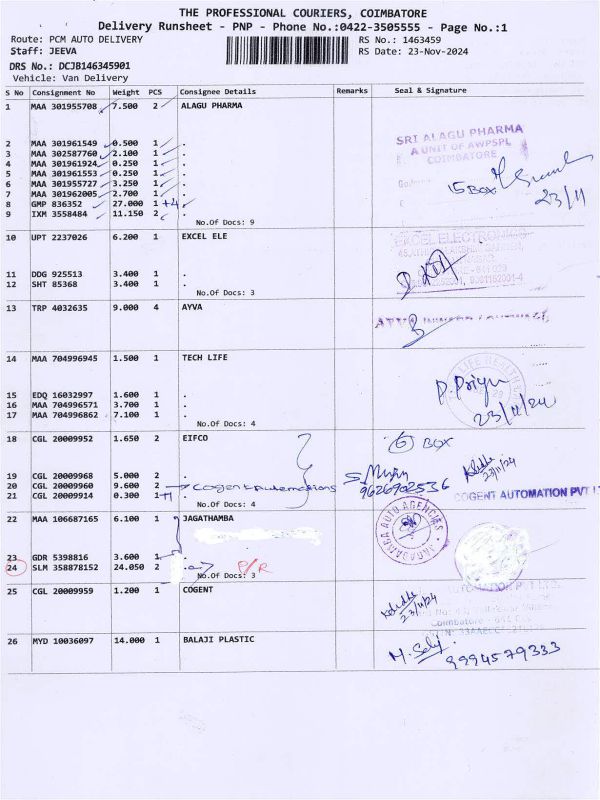 THE PROFESSIONAL COURIERS, COIMBATORE
Delivery Runsheet - PNP - Phone No.:0422-3505555 - Page No.:1
Route: PCM AUTO DELIVERY RS No.: 1463459
Staff: JEEVA RS Date: 23-Nov-2024
DRS No.: DCJB146345901
Vehicle: Van Delivery
S No Consignment No Weight PCS Consignee Details Remarks Seal & Signature
1 MAA 301955708 7.500 2 ALAGU PHARMA
SRI ALAGU PHARMA
A UNIT OF AWPSPL
COIMBATORE
2 MAA 301961549 0.500 1 .
3 MAA 302587760 2.100 1 .
4 MAA 301961924 0.250 1 .
5 MAA 301961553 0.250 1 .
6 MAA 301955727 3.250 1 .
7 MAA 301962005 2.700 1 .
8 GMP 836352 27.000 1 +4 .
9 IXM 3558484 11.150 2 .
15 BOX
23/11
No.Of Docs: 9
10 UPT 2237026 6.200 1 EXCEL ELE
EXCEL ELECTRONICS
11 DDG 925513 3.400 1 .
12 SHT 85368 3.400 1 .
No.Of Docs: 3
13 TRP 4032635 9.000 4 AYVA
14 MAA 704996945 1.500 1 TECH LIFE
15 EDQ 16032997 1.600 1 .
16 MAA 704996571 3.700 1 .
17 MAA 704996862 7.100 1 .
P. Priya
23/11/24
No.Of Docs: 4
18 CGL 20009952 1.650 2 EIFCO
6 BOX
19 CGL 20009968 5.000 2 .
20 CGL 20009960 9.600 2 Cogent Automations
21 CGL 20009914 0.300 1 .
9626902536
23/11/24
COGENT AUTOMATION PVT L
No.Of Docs: 4
22 MAA 106687165 6.100 1 JAGATHAMBA
AUTO AGENCIES
23 GDR 5398816 3.600 1 .
24 SLM 358878152 24.050 2 . P/R
No.Of Docs: 3
25 CGL 20009959 1.200 1 COGENT
23/11/24
Coimbatore
26 MYD 10036097 14.000 1 BALAJI PLASTIC
M. Selv 9994579333